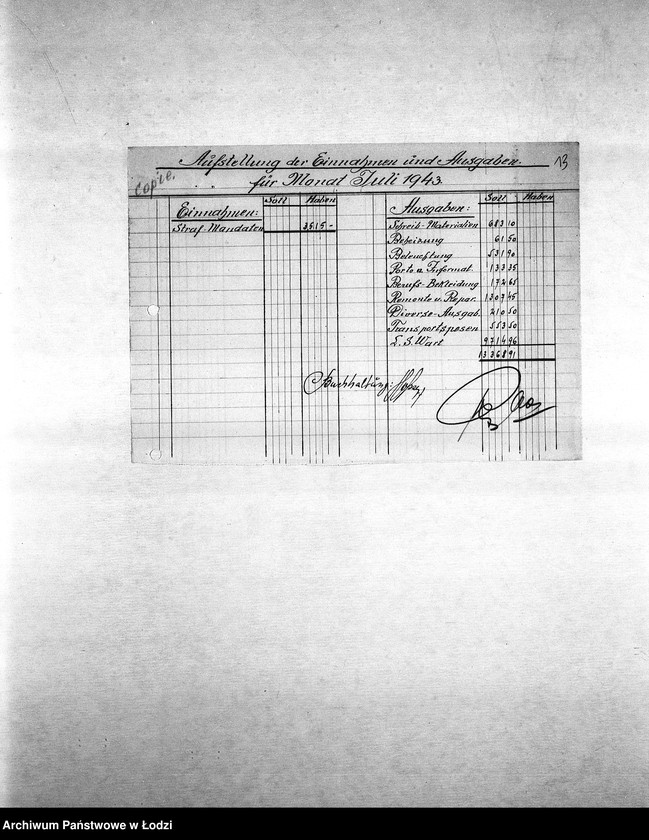 Aufstellung der Einnahmen und Ausgaben. 13
Copie.
für Monat Juli 1943.
Soll Haben
Einnahmen:
Straf-Mandaten 3515 -
Soll Haben
Ausgaben:
Schreib-Materialien 683 10
Beheizung 61 50
Beleuchtung 531 90
Porto u. Informat. 133 35
Berufs-Bekleidung 172 65
Remonte u. Repar. 1307 45
Diverse-Ausgab. 210 50
Transportspesen 553 50
L. S. Wart 9714 96
13368 91
Buchhaltung:
Archiwum Państwowe w Łodzi